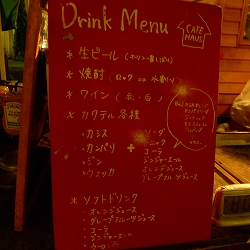 Drink Menu
CAFE HAUS
* 生ビール (キリン一番しぼり)
* 焼酎 (ロック or 水割り)
* ワイン (赤・白)
* カクテル各種
・カシス
・カンパリ
・ジン
・ウォッカ
+
・ソーダ
・トニック
・コーラ
・ジンジャーエール
・オレンジジュース
・グレープフルーツジュース
* ソフトドリンク
・オレンジジュース
・グレープフルーツジュース
・コーラ
・ジンジャーエール
・ウーロン茶